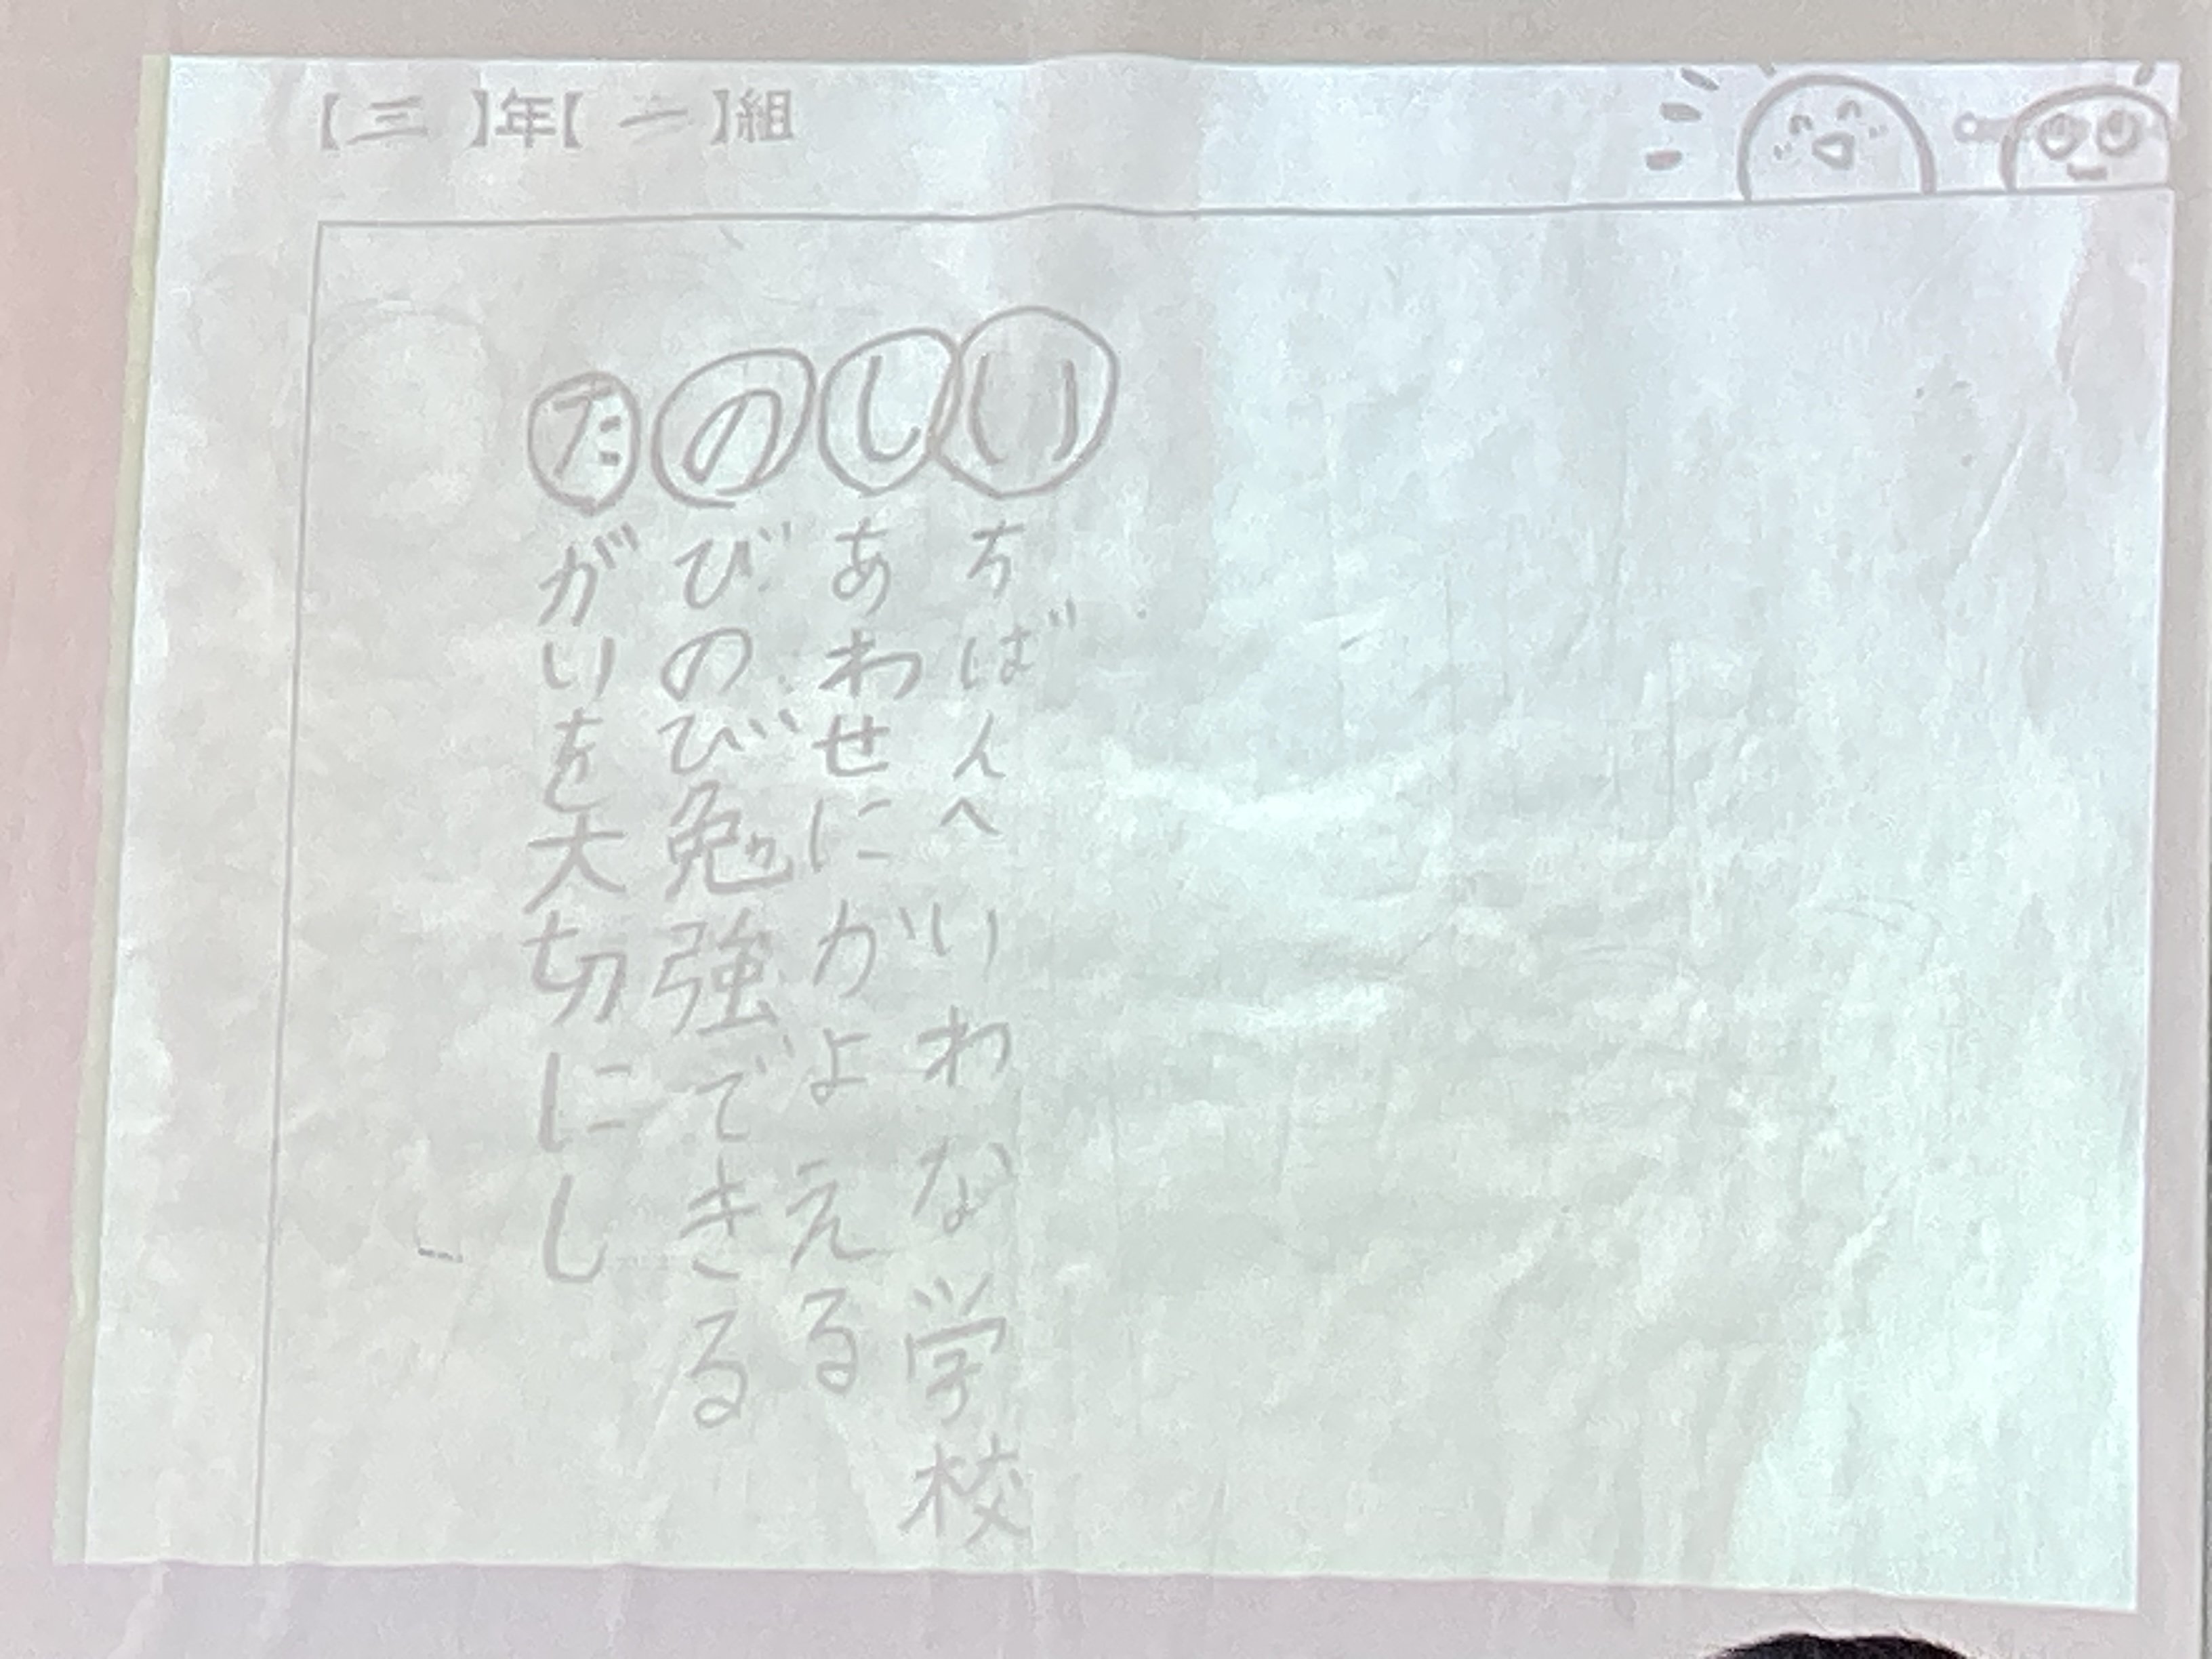 【三】年【一】組
たがいを大切にし
のびのび勉強できる
しあわせにかよえる
いちばんへいわな学校